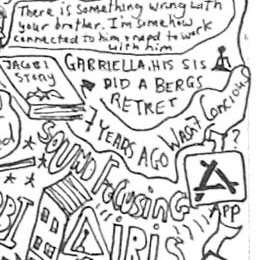 There is something wrong with
your brother. I'm somehow
connected to him & need to work
with him
GABRIELLA, HIS SIS
JACOBI
Story
DID A BERGS
RETRET
7 YEARS AGO
WASN'T CONCIOUS
?
SOUND FOCUSING
APP
IRIS